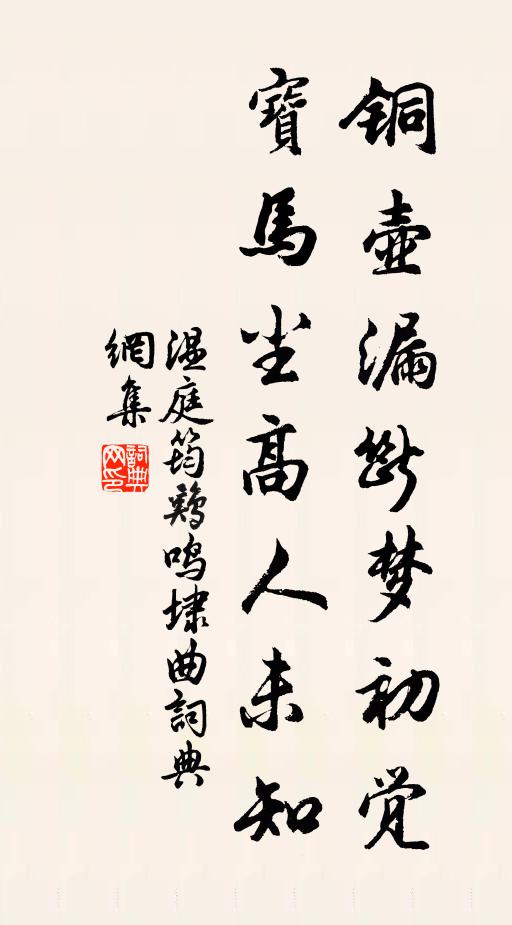 铜壶漏断梦初觉
寶馬尘高人未知
温庭筠鶏鸣埭曲詞典
網集
詞典
网印